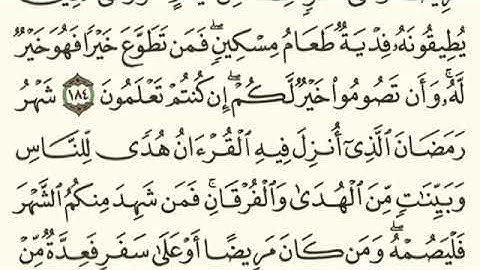 يُطِيقُونَهُۥ فِدۡيَةٞ طَعَامُ مِسۡكِينٖۖ فَمَن تَطَوَّعَ خَيۡرٗا فَهُوَ خَيۡرٞ
لَّهُۥۚ وَأَن تَصُومُواْ خَيۡرٞ لَّكُمۡ إِن كُنتُمۡ تَعۡلَمُونَ ١٨٤ شَهۡرُ
رَمَضَانَ ٱلَّذِيٓ أُنزِلَ فِيهِ ٱلۡقُرۡءَانُ هُدٗى لِّلنَّاسِ
وَبَيِّنَٰتٖ مِّنَ ٱلۡهُدَىٰ وَٱلۡفُرۡقَانِۚ فَمَن شَهِدَ مِنكُمُ ٱلشَّهۡرَ
فَلۡيَصُمۡهُۖ وَمَن كَانَ مَرِيضًا أَوۡ عَلَىٰ سَفَرٖ فَعِدَّةٞ مِّنۡ